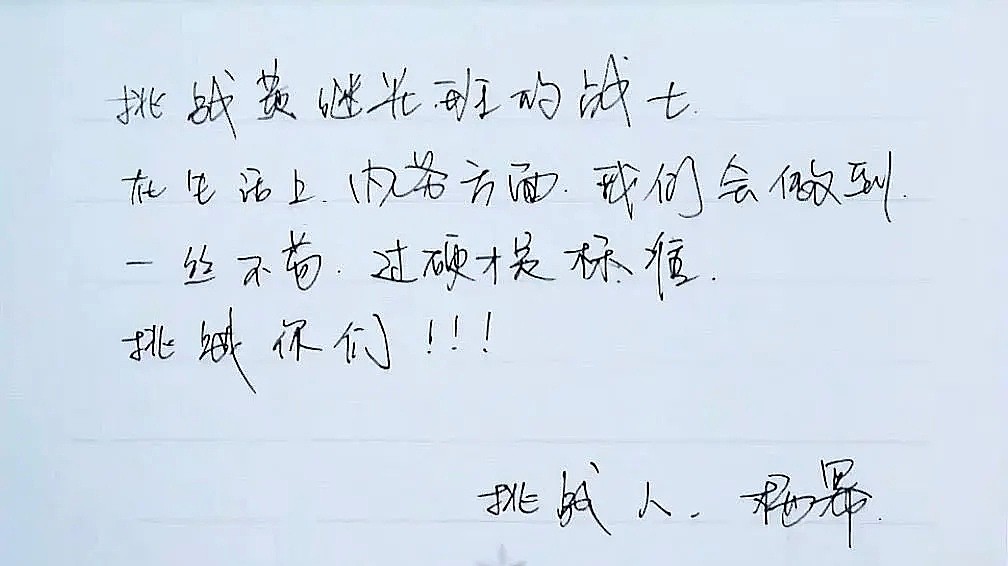 挑战黄继光班的战士.
在生活上.内务方面.我们会做到.
一丝不苟.过硬才是标准.
挑战你们!!!
挑战人.杨幂.